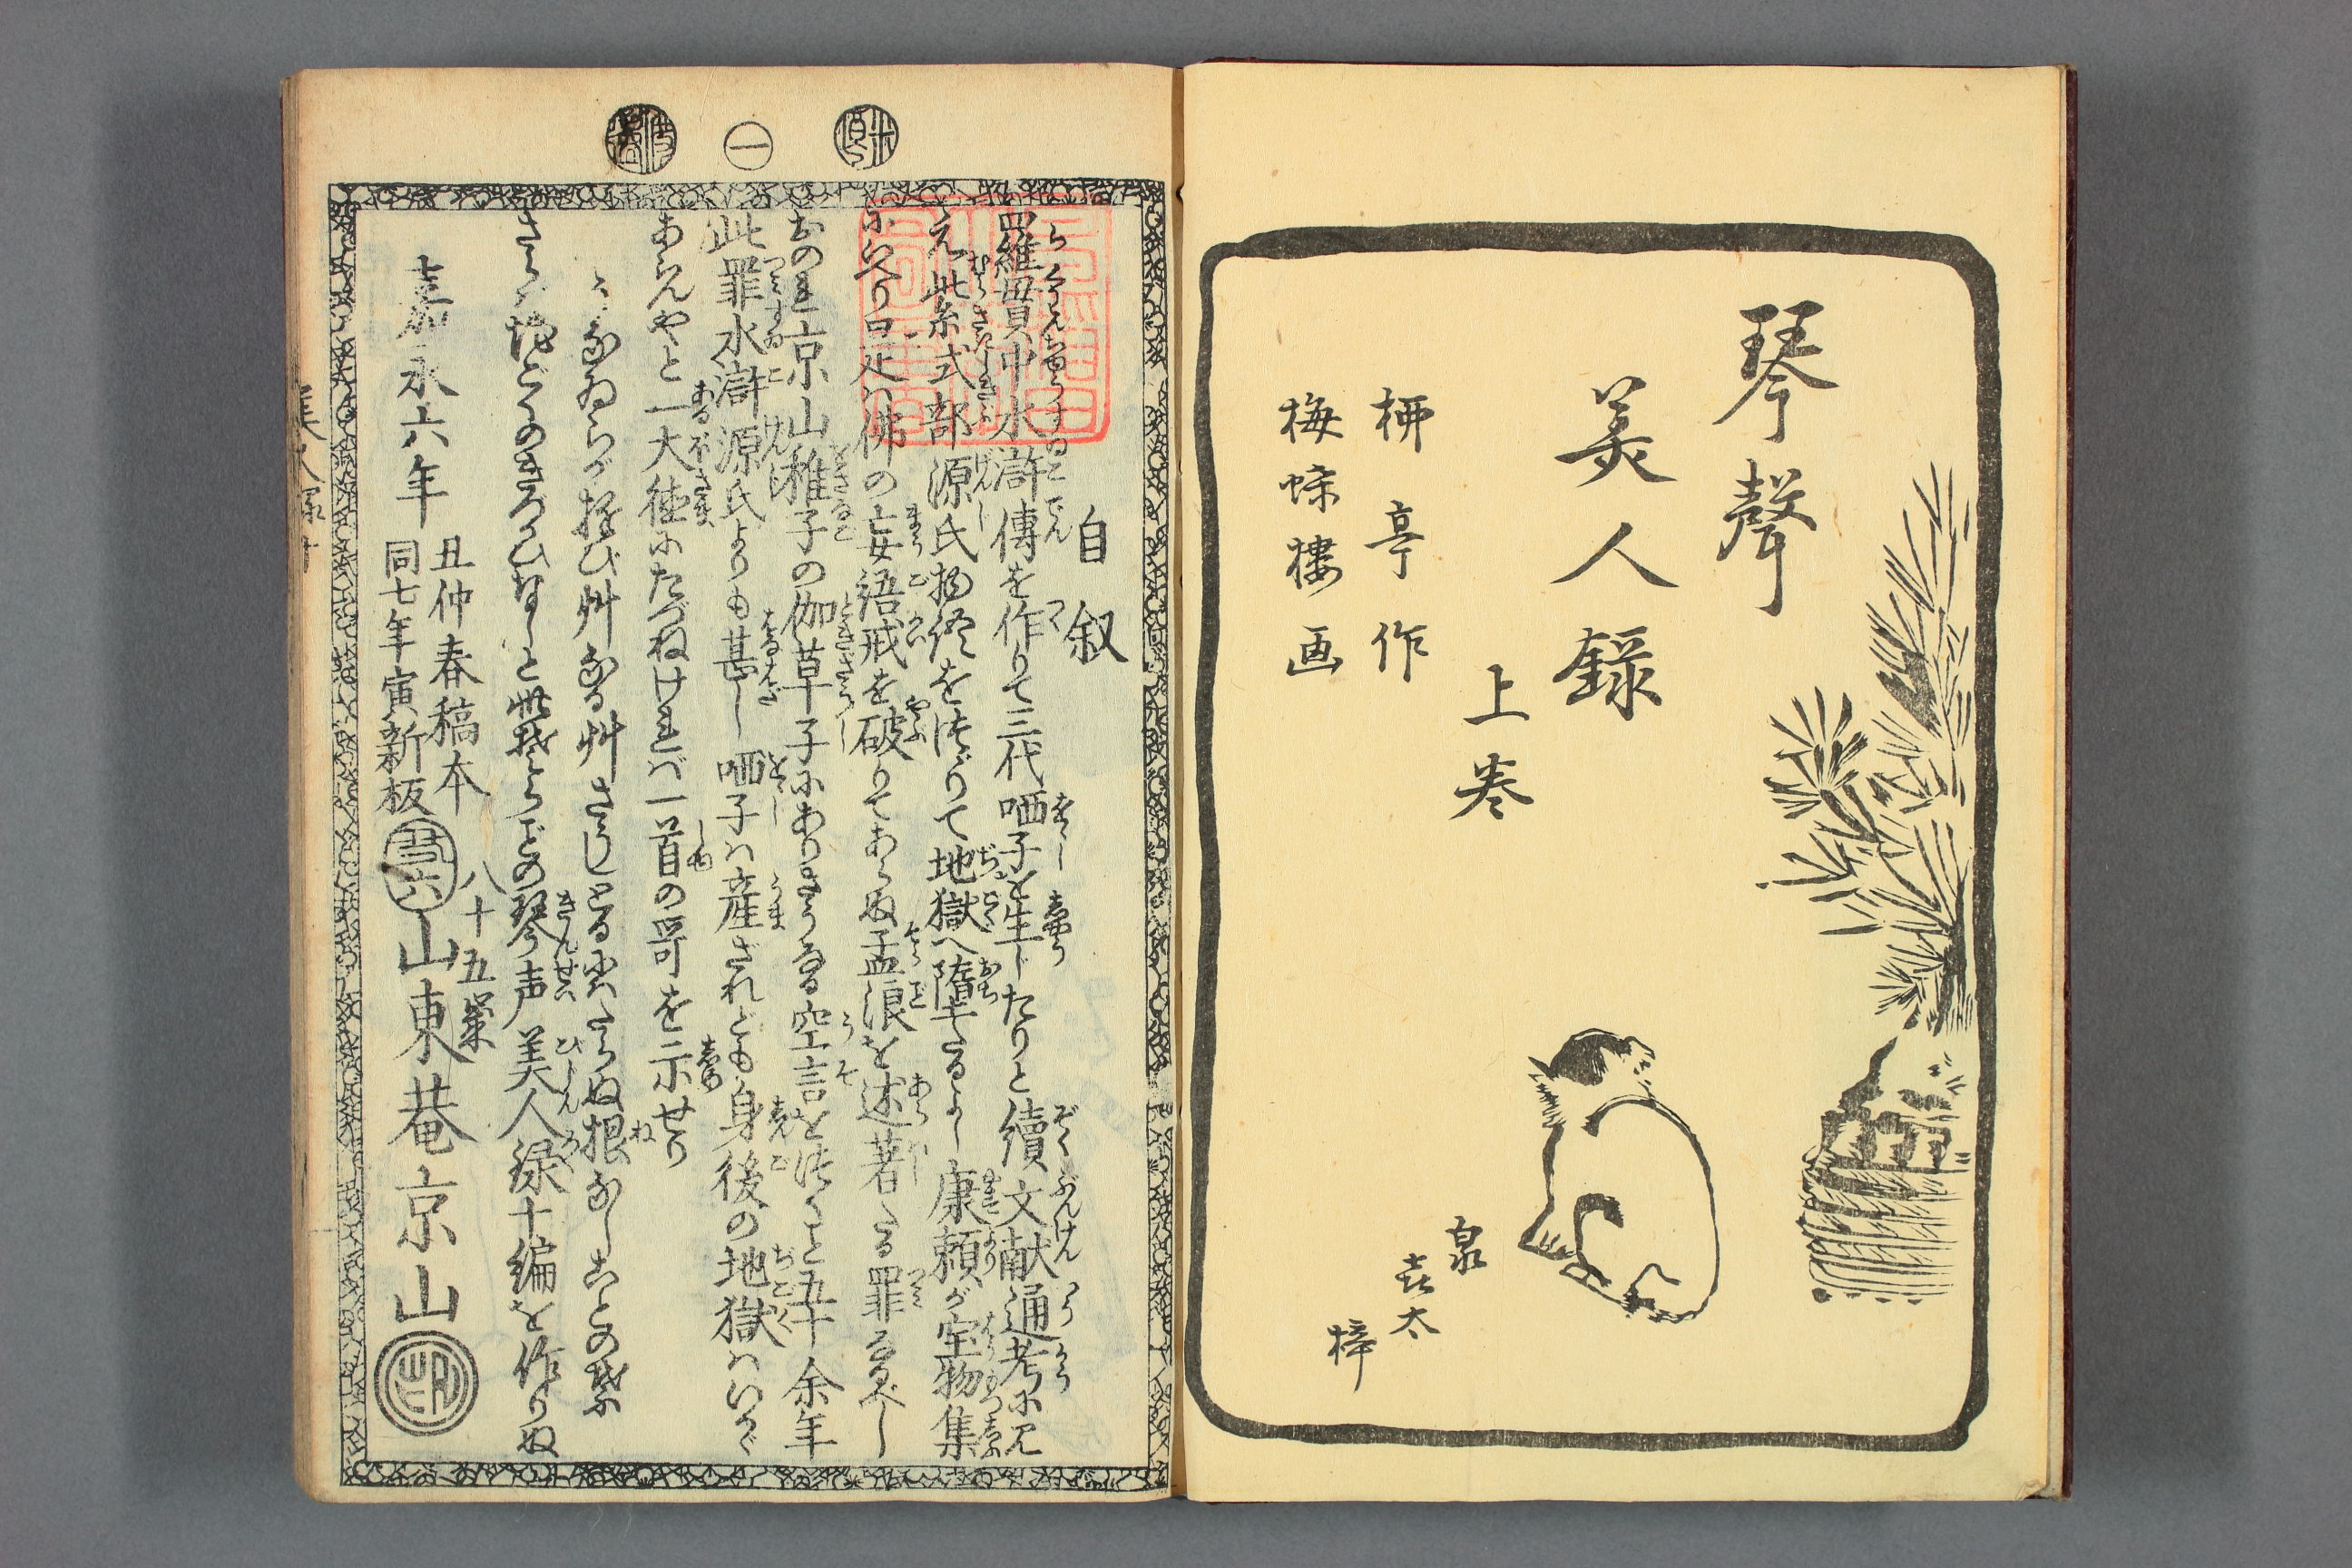 琴聲
美人録
上巻
柳亭作
梅蝶楼画
泉
㐂太
梓
一
自叙
羅貫中水滸傳を作りて三代唖子を生じたりと續文献通考に見
え紫式部源氏物語を作りて地獄へ墮たるよし康頼が宝物集
にいへり曰是ハ佛の妄語戒を破りてあらぬ孟浪を述著たる罪なるべし
おのれ京山稚子の伽草子にありさうなる空言を作ること五十余年
此罪水滸源氏よりも甚し唖子ハ産ざれども身後の地獄ハいかゞ
あらんやと一大徳にたづねけれバ一首の哥を示せり
琴声美人録十編を作りぬ
嘉永六年
丑仲春稿本
同七年寅新板
八十五叟
山東菴京山